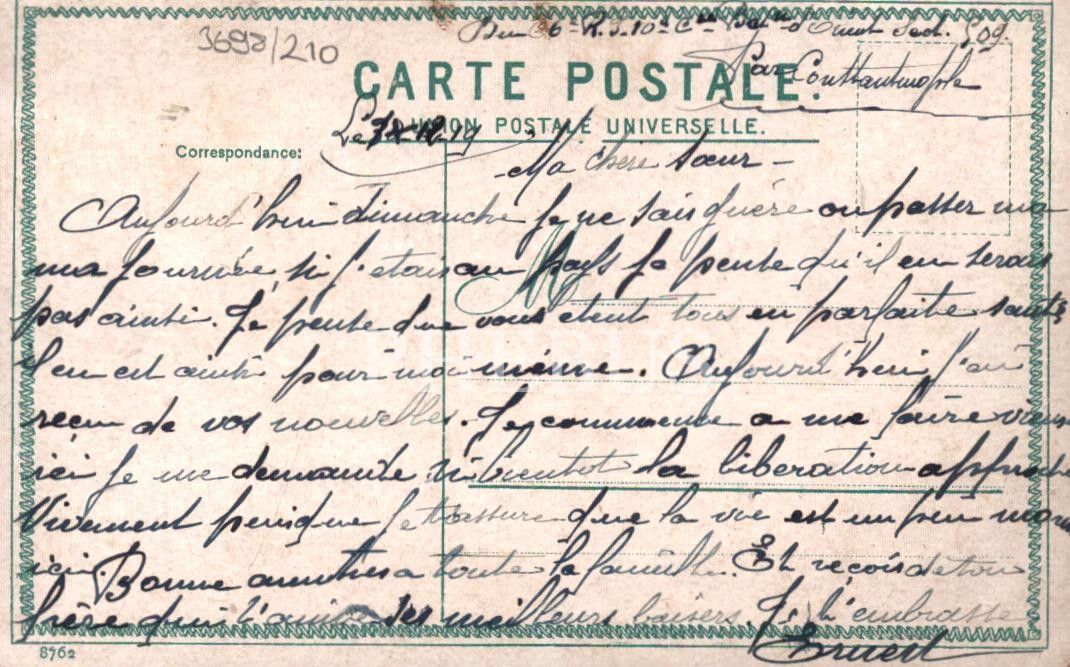 3698/210
10e Cie Bat d'Orient Sect. 509.
Par Constantinople
CARTE POSTALE.
UNION POSTALE UNIVERSELLE.
Le 12 19
Correspondance:
- Ma chère sœur -
Aujourd'hui dimanche je ne sais guère ou passer ma
ma journée si j'etais au pays je pense qu'il en serais
pas ainsi. Je pense que vous etent tous en parfaite santé
il en est ainsi pour moi même. Aujourd'hui j'ai
reçu de vos nouvelles. Je commence a me faire vieux
ici je me demande si bientot la liberation approche
Vivement puisque je t'assure que la vie est un peu
ici. Bonne a toute la famille. Et reçois de ton
frère qui t'aime ses meilleurs baisers. Je t'embrasse
Ernest
8762